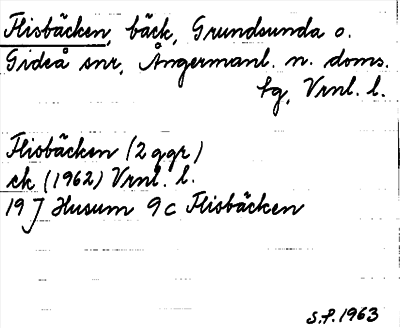 Flisbäcken, bäck, Grundsunda o.
Gideå snr, Ångermanl. n. doms.
tg, Vrnl. l.
Flisbäcken (2 ggr)
ek (1962) Vrnl. l.
19 J Husum 9 c Flisbäcken
S.F. 1963